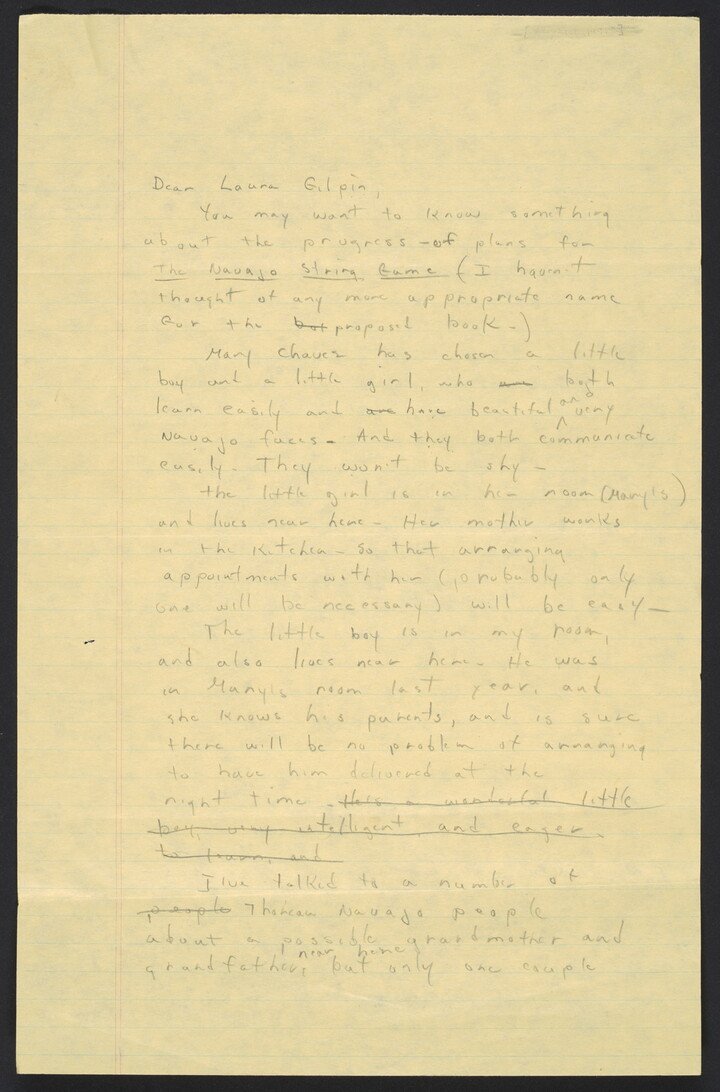 Dear Laura Gilpin,
You may want to know something
about the progress of plans for
The Navajo String Game (I haven't
thought of any more appropriate name
for the bot proposed book.)
Mary Chavez has chosen a little
boy and a little girl, who are both
learn easily and are have beautiful and very
Navajo faces. And they both communicate
easily. They won't be shy.
The little girl is in her room (Mary's)
and lives near here. Her mother works
in the kitchen. So that arranging
appointments with her (probably only
one will be necessary) will be easy.
The little boy is in my room,
and also lives near here. He was
in Mary's room last year, and
she knows his parents, and is sure
there will be no problem of arranging
to have him delivered at the
right time. He's a wonderful little
boy, very intelligent, and eager
to learn, and
I've talked to a number of
people Thoreau Navajo people
about a possible grandmother and
grandfather near here, but only one couple